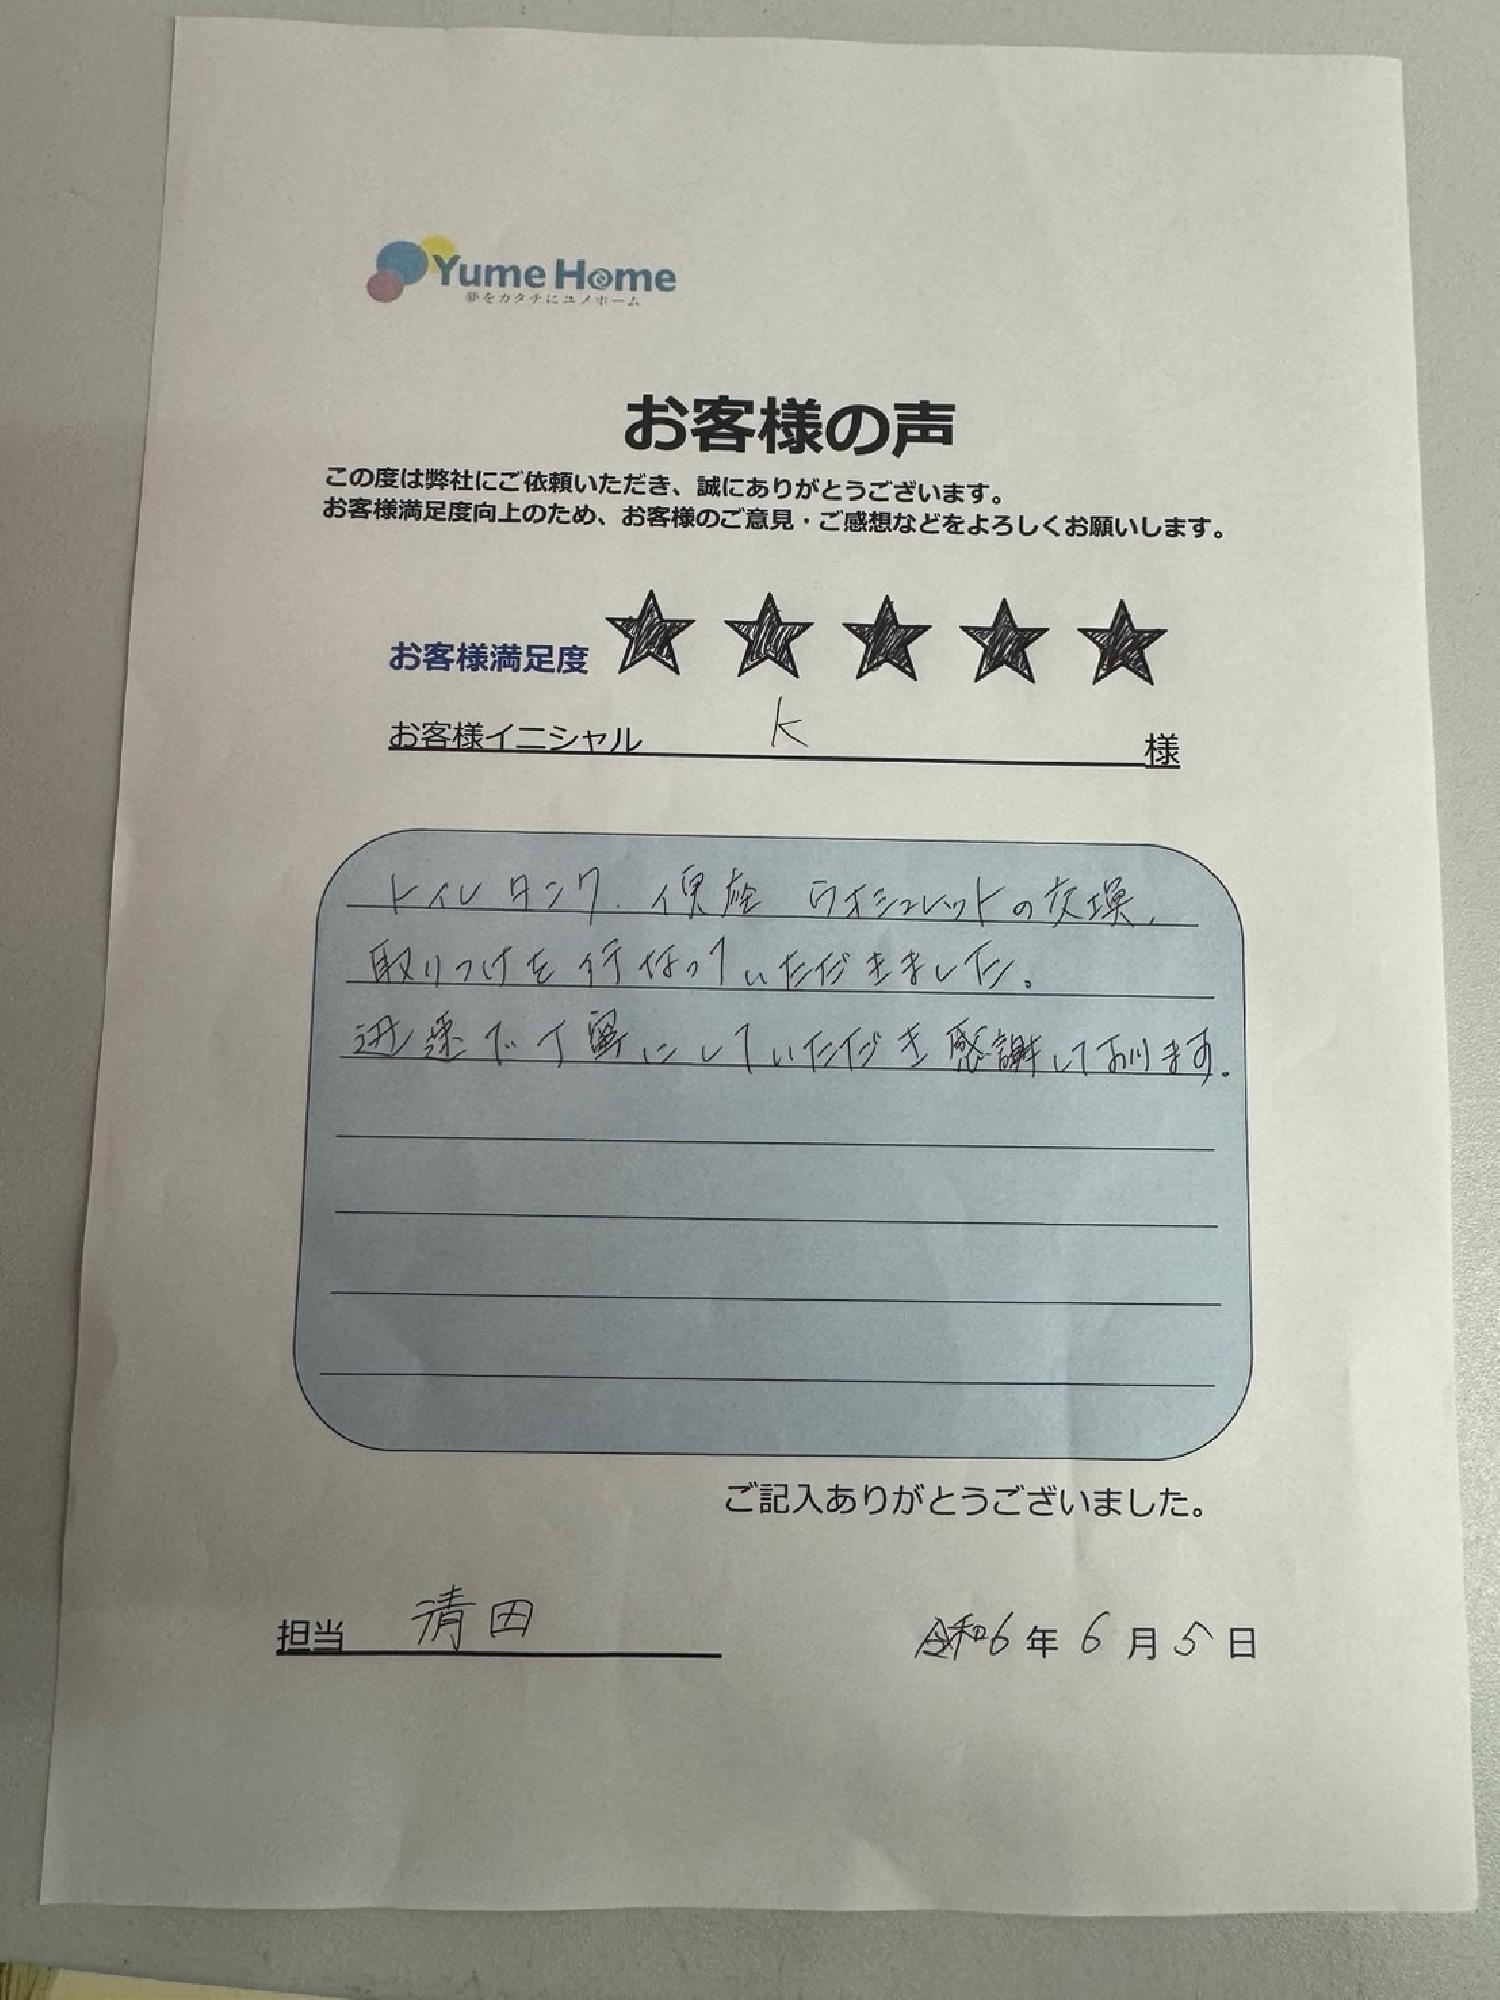 Yume Home
夢をカタチにユメホーム
お客様の声
この度は弊社にご依頼いただき、誠にありがとうございます。
お客様満足度向上のため、お客様のご意見・ご感想などをよろしくお願いします。
お客様満足度 ★ ★ ★ ★ ★
お客様イニシャル K 様
トイレタンク、便座 ウオシュレットの交換、
取りつけを行なっていただきました。
迅速で丁寧にしていただき感謝しております。
ご記入ありがとうございました。
担当 清田
令和6年6月5日